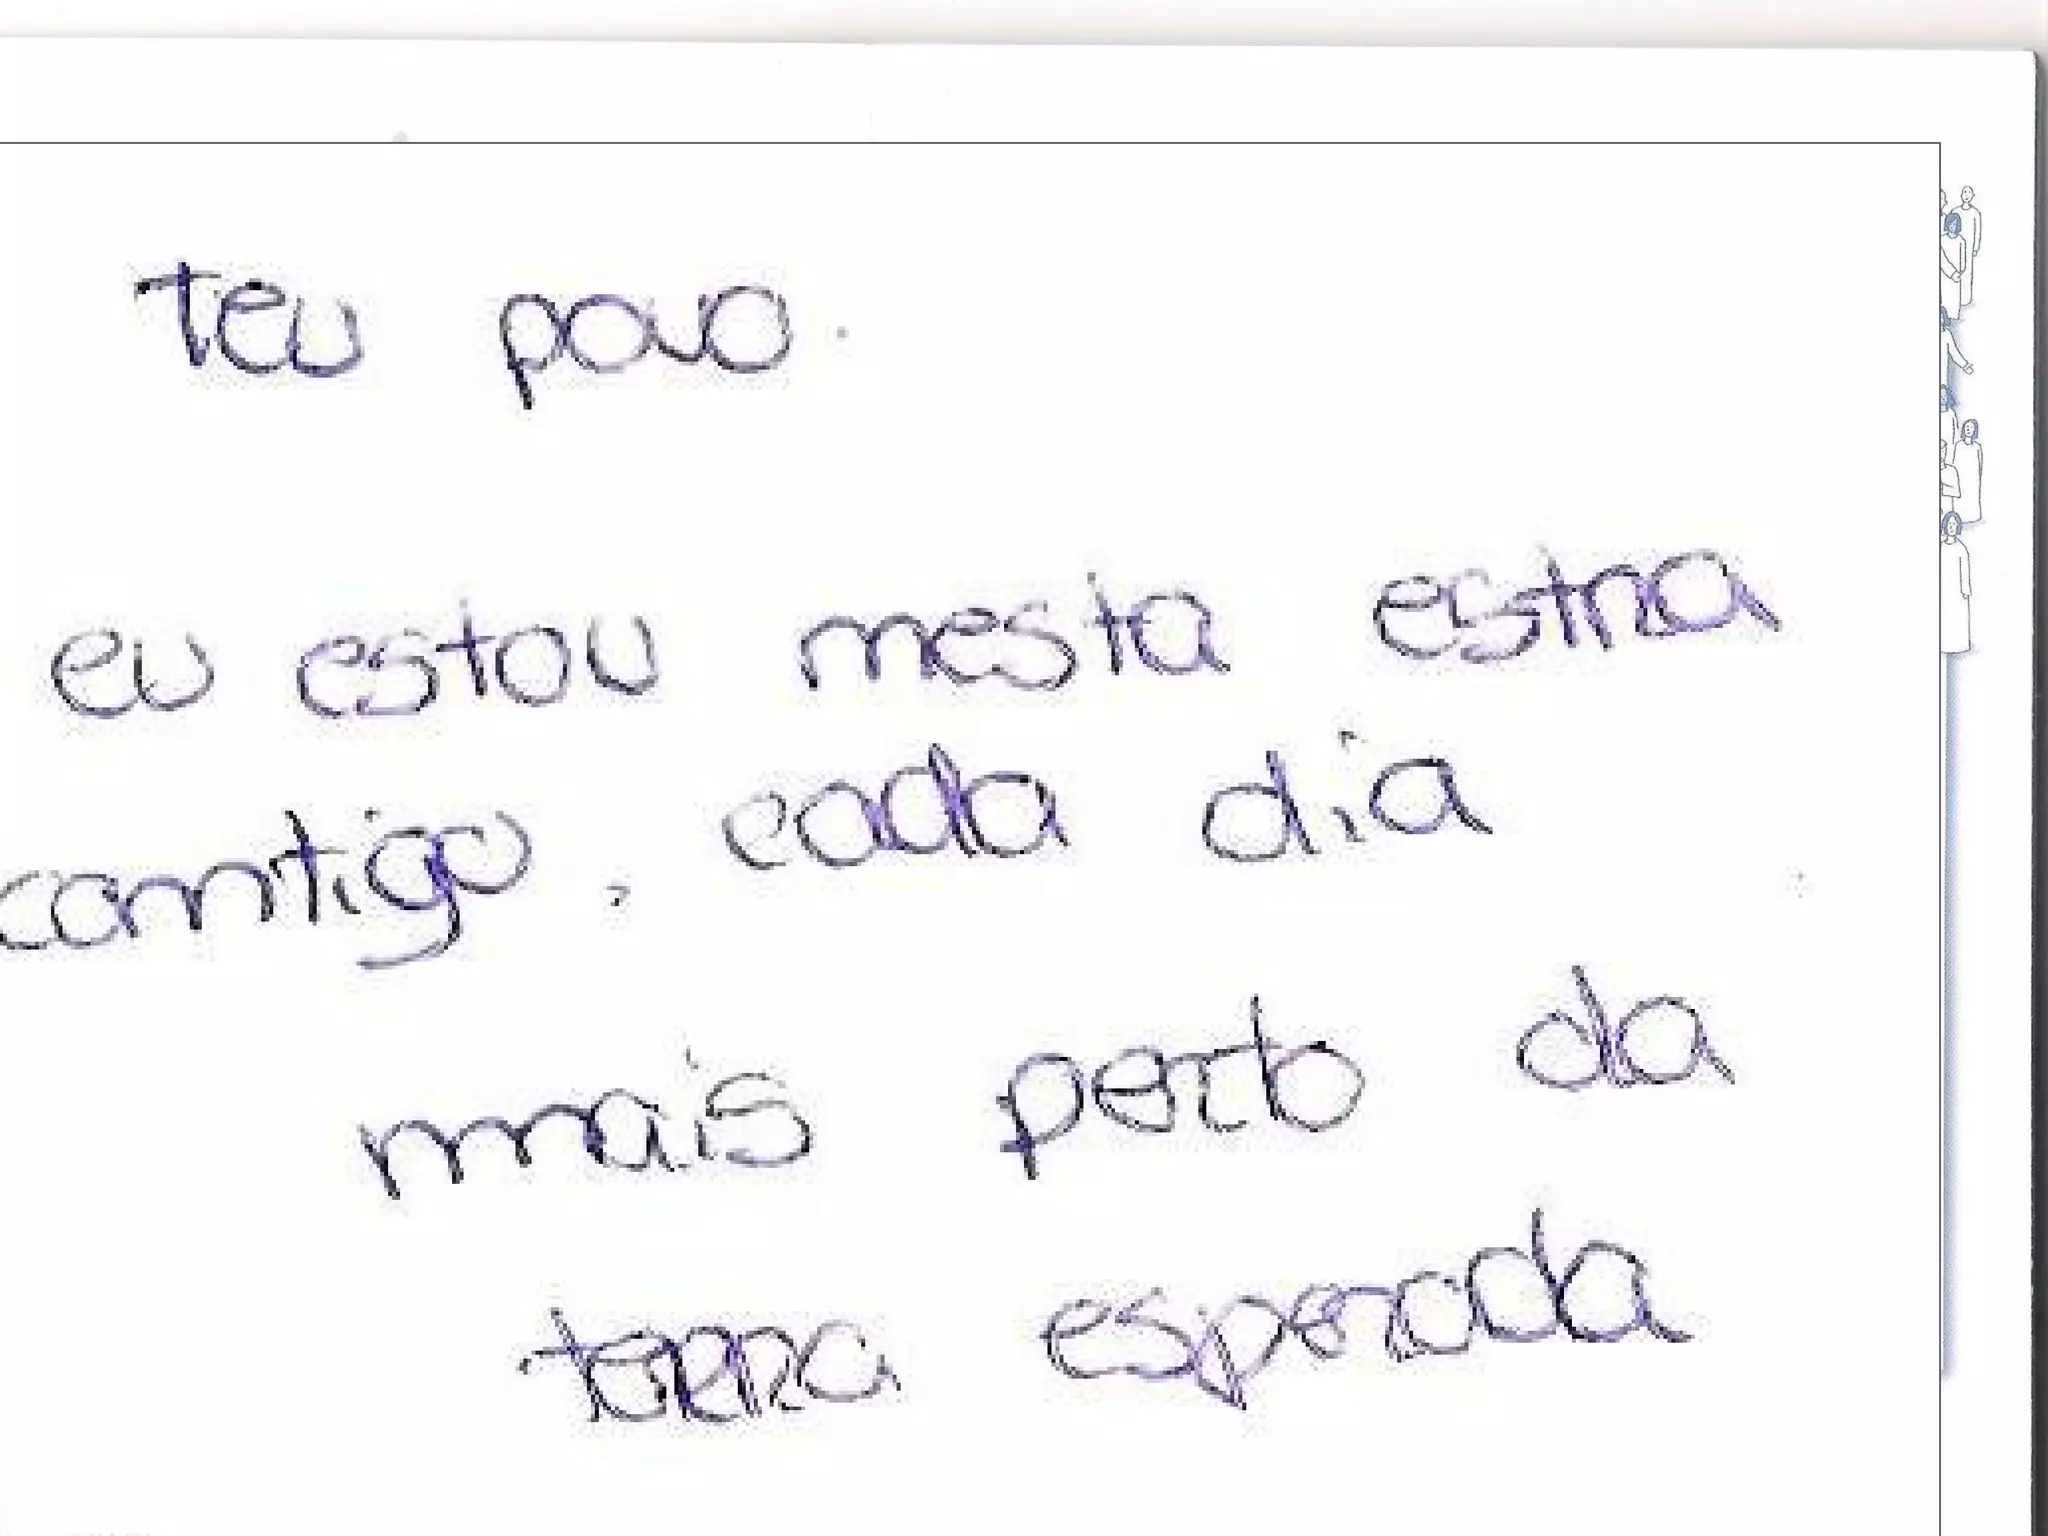 Teu povo.
eu estou mesta estra
comtigo, cada dia
mais perto da
terra esperada